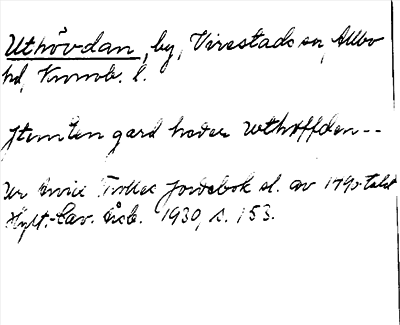 Uthövdan, by, Virestads sn, Allbo
hd, Kronob. l.
Jtem len gard heder wthøffden--
Ur Trolles Jordebok sl. av 1490-talet
Hylt.-Cav. Årsb. 1930, s. 153.